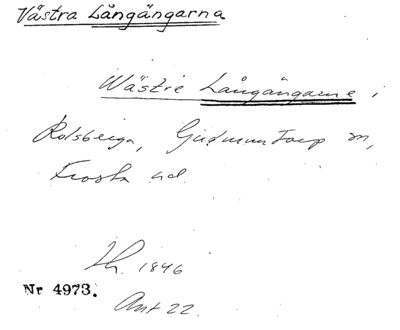 Västra Långängarna
Wästre Långängarne i
Rolsberga, Gudmuntorp m,
Frosta hd.
Lh. 1846
Nr 4973.
Ant 22.